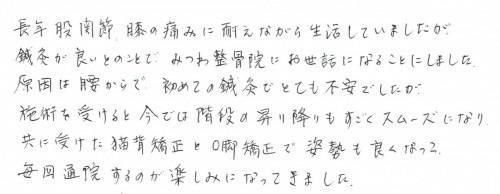 長年股関節、膝の痛みに耐えながら生活していましたが、
鍼灸が良いとのことで、みつわ整骨院にお世話になることにしました。
原因は腰からで、初めての鍼灸でとても不安でしたが、
施術を受けると今では階段の昇り降りもすごくスムーズになり、
共に受けた猫背矯正とO脚矯正で姿勢も良くなって、
毎回通院するのが楽しみになってきました。